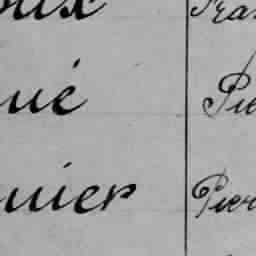 oux Fra
ué Pie
nier Pier